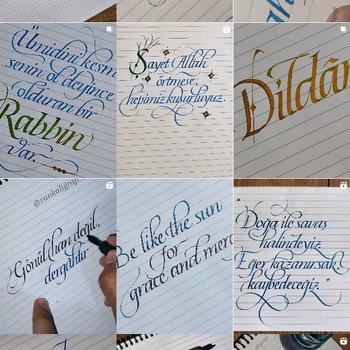 "Ümidini kesme
senin ol deyince
olduran bir
Rabbin
var.
Şayet Allah
örtmese,
hepimiz kusurluyuz.
Dildâr
Gönül han değil,
dergâhtır
Be like the sun
for
grace and mercy
"Doğa ile savaş
halindeyiz.
Eğer kazanırsak,
kaybedeceğiz."